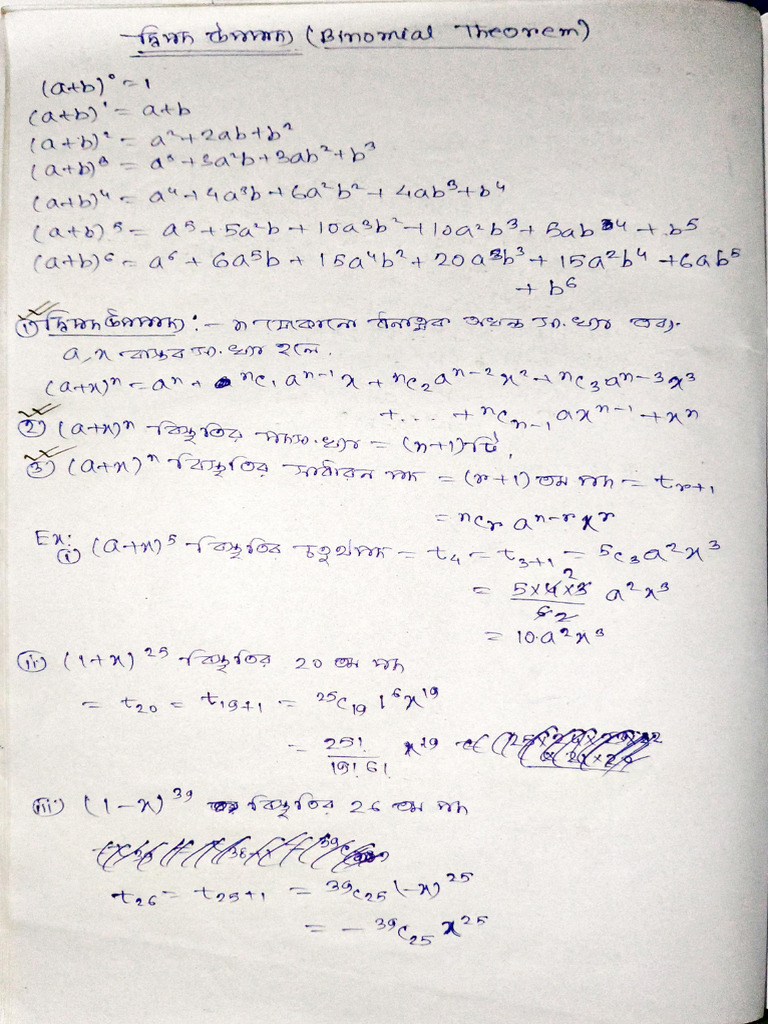 দ্বিপদ উপপাদ্য (Binomial Theorem)
(a+b)⁰ = 1
(a+b)¹ = a+b
(a+b)² = a²+2ab+b²
(a+b)³ = a³+3a²b+3ab²+b³
(a+b)⁴ = a⁴+4a³b+6a²b²+4ab³+b⁴
(a+b)⁵ = a⁵+5a²b+10a³b²+10a²b³+5ab⁴+b⁵
(a+b)⁶ = a⁶+6a⁵b+15a⁴b²+20a³b³+15a²b⁴+6ab⁵
+b⁶
① দ্বিপদ উপপাদ্য :- n যেকোনো ধনাত্মক অখন্ড সংখ্যা এবং
a, x বাস্তব সংখ্যা হলে,
(a+x)ⁿ = aⁿ + ⁿc₁ aⁿ⁻¹x + ⁿc₂aⁿ⁻²x² + ⁿc₃aⁿ⁻³x³
+... + ⁿcₙ₋₁ axⁿ⁻¹ + xⁿ
② (a+x)ⁿ বিস্তৃতির পদসংখ্যা = (n+1)টি,
③ (a+x)ⁿ বিস্তৃতির সাধারন পদ = (r+1) তম পদ = t_{r+1}
= ⁿcᵣ aⁿ⁻ʳxʳ
Ex:
(i) (a+x)⁵ বিস্তৃতির চতুর্থপদ = t₄ = t₃₊₁ = ⁵c₃a²x³
= 5×4×3/6 a²x³
= 10.a²x³
(ii) (1+x)²⁵ বিস্তৃতির 20 তম পদ
= t₂₀ = t₁₉₊₁ = ²⁵c₁₉ 1⁶x¹⁹
= 25!/19! 6! x¹⁹
(iii) (1-x)³⁹ বিস্তৃতির 26 তম পদ
t₂₆ = t₂₅₊₁ = ³⁹c₂₅ (-x)²⁵
= - ³⁹c₂₅ x²⁵